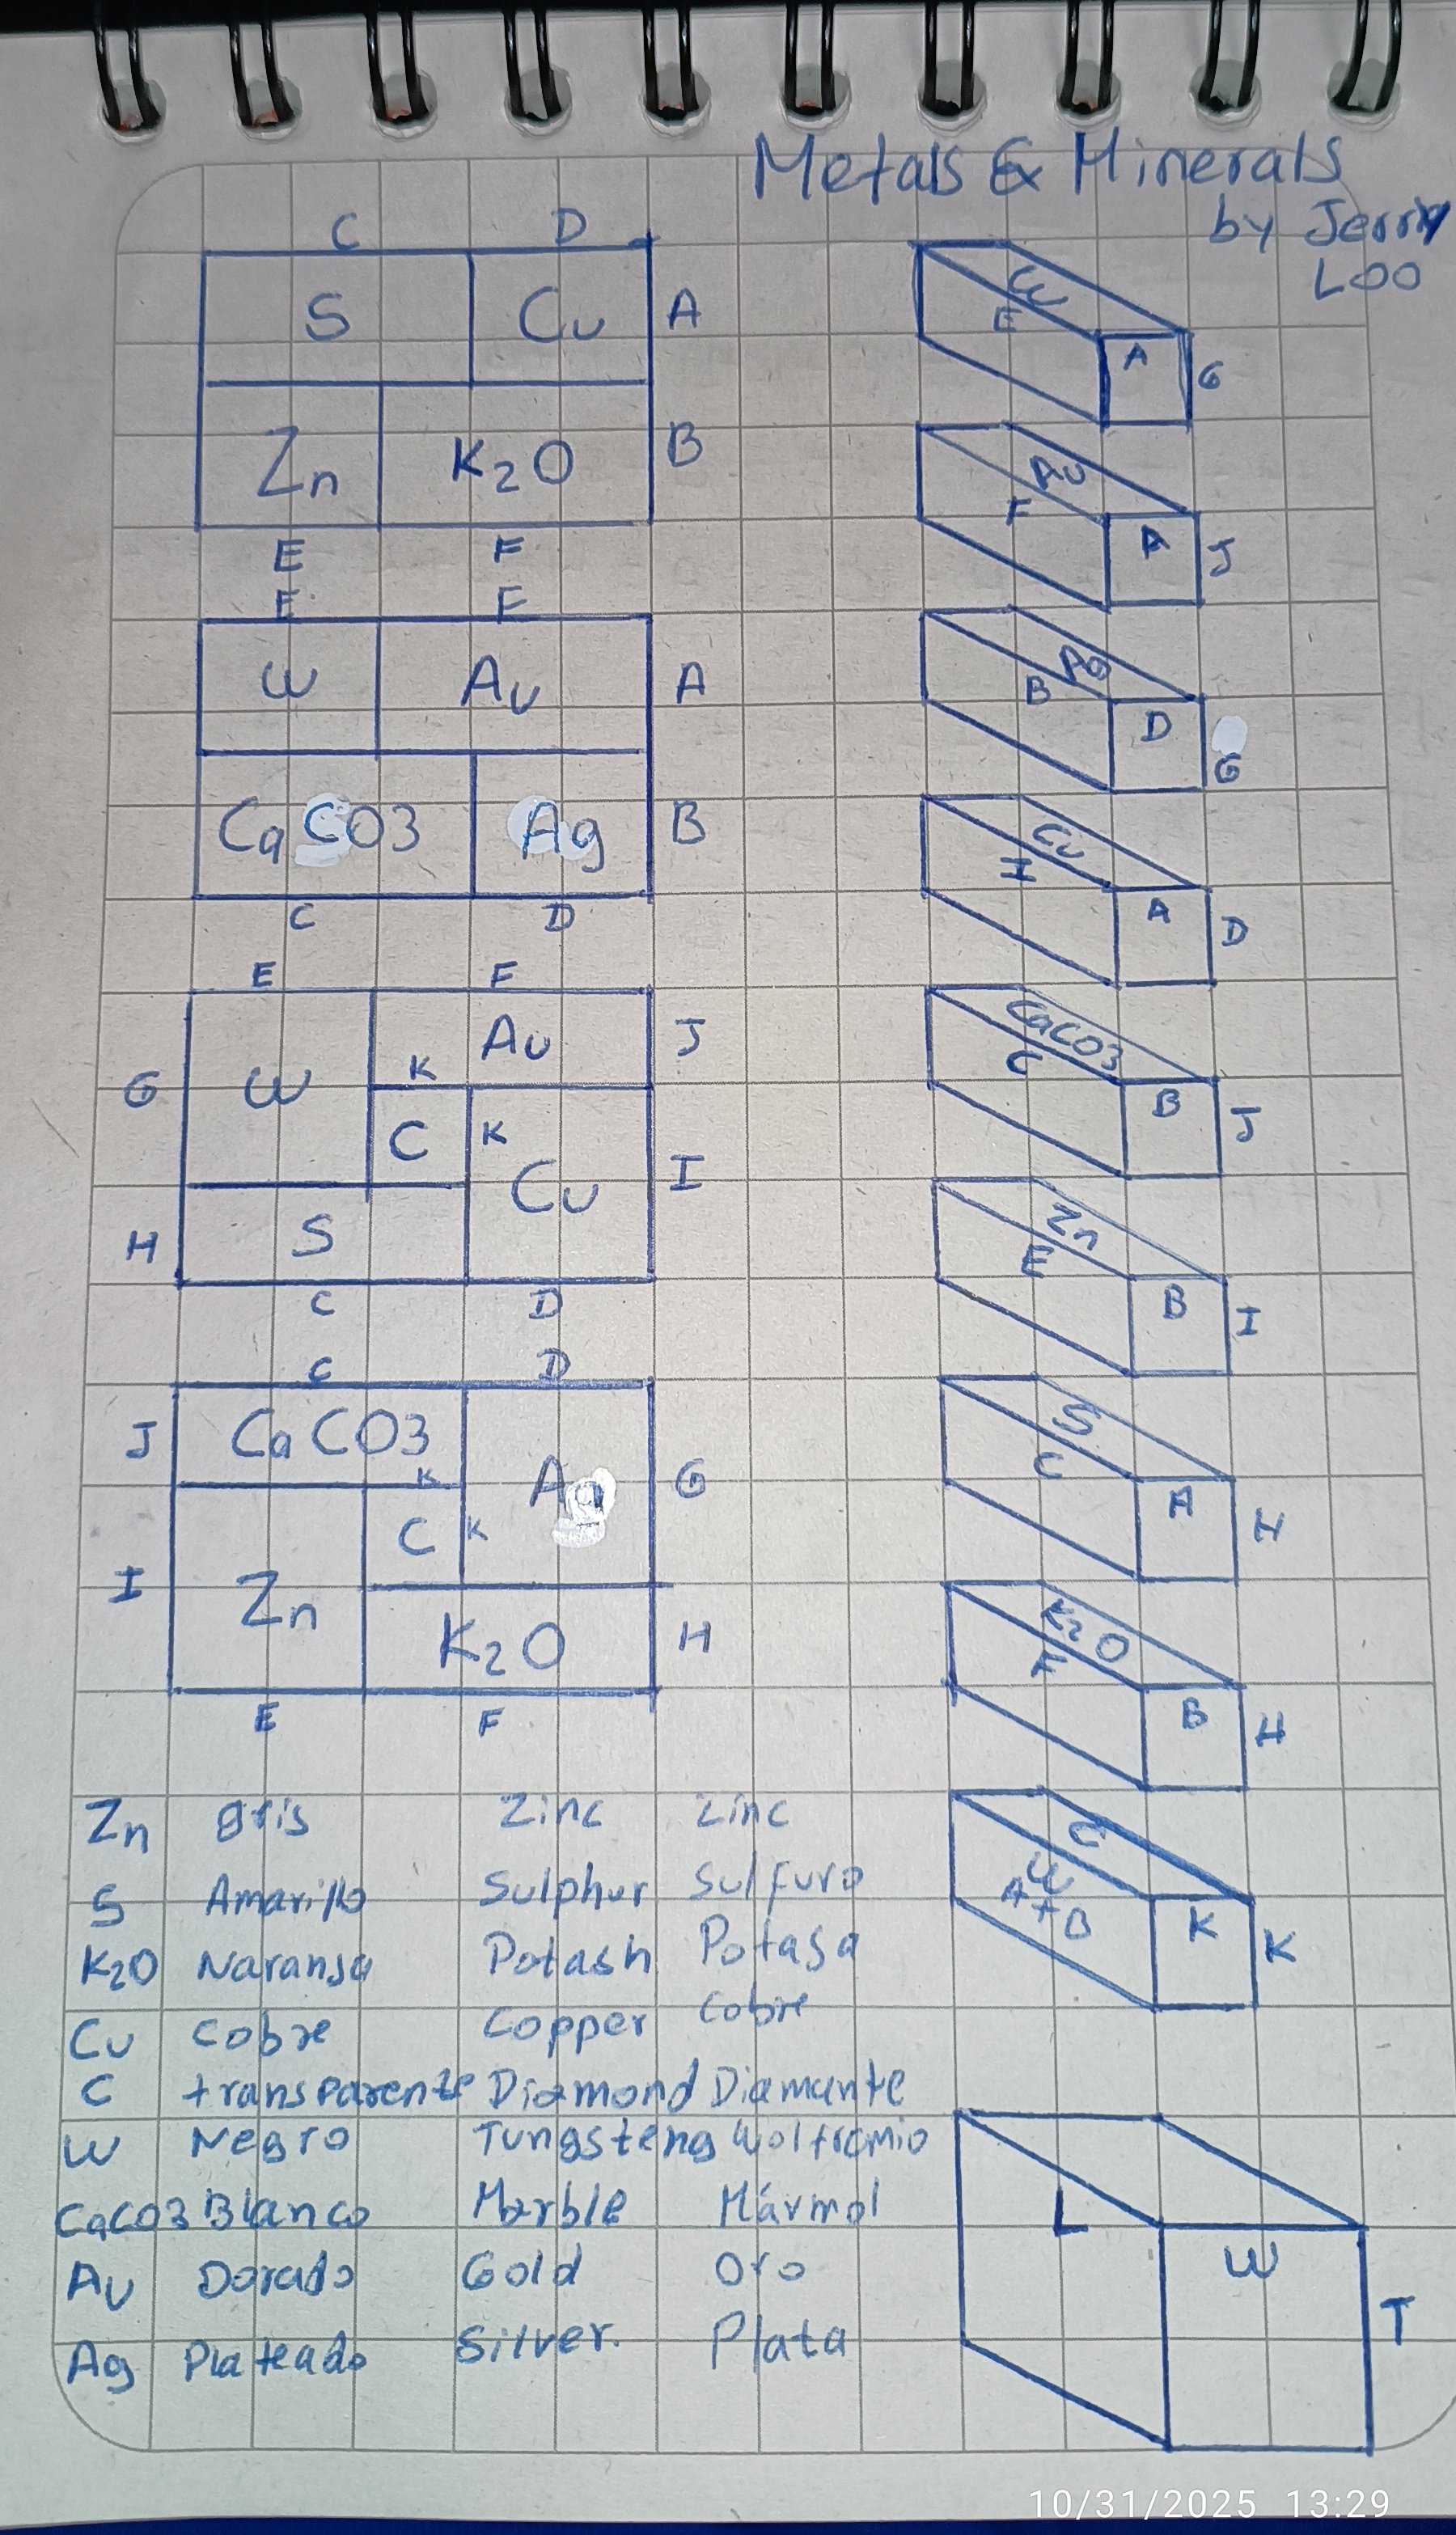 Metals & Minerals
by Jerry
Loo
C D
S Cu A
Zn K2O B
E F
E F
W Au A
CaCO3 Ag B
C D
E F
Au J
G W K
C K
Cu I
H S
C D
C D
J CaCO3 K
Ag G
C K
I Zn
K2O H
E F
W
E A G
Au
F A J
Ag
B D G
Cu
I A D
CaCO3
C B J
Zn
E B I
S
C A H
K2O
F B H
C
A+B K K
L W T
Zn gris Zinc Zinc
S Amarillo Sulphur Sulfuro
K2O Naranja Potash Potasa
Cu Cobre Copper Cobre
C transparente Diamond Diamante
W Negro Tungsteng Wolframio
CaCO3 Blanco Marble Mármol
Au Dorado Gold Oro
Ag Plateado Silver. Plata
10/31/2025 13:29